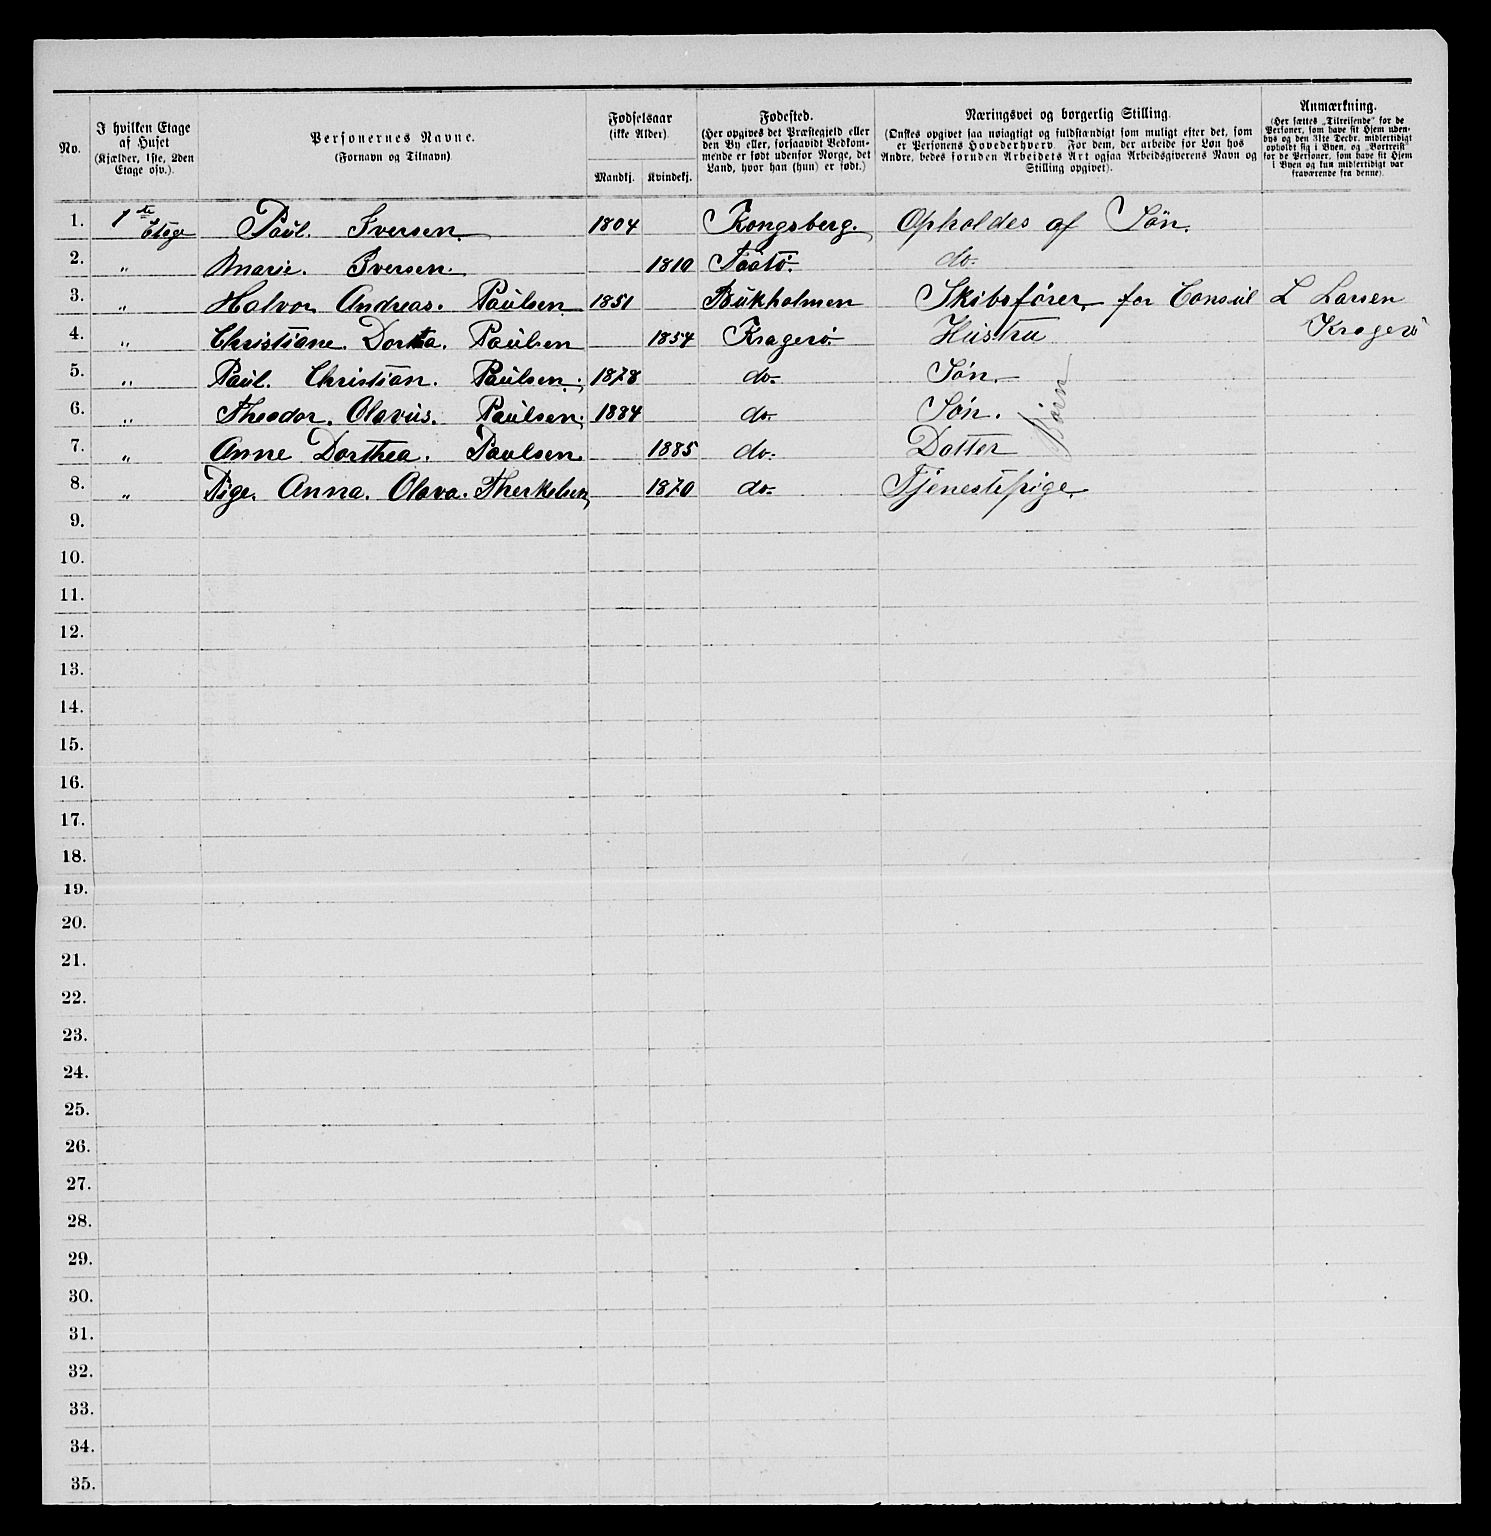 No.
I hvilken Etage af Huset
(Kjælder, 1ste, 2den Etage osv.).
Personernes Navne.
(Fornavn og Tilnavn)
Fødselsaar
(ikke Alder)
Mandkj. Kvindekj.
Fødested.
(Her opgives det Præstegjeld eller den By eller, forsaavidt Vedkommende er født udenfor Norge, det Land, hvor han (hun) er født.)
Næringsvei og borgerlig Stilling.
(Ønskes opgivet saa nøiagtigt og fuldstændigt som muligt efter det, som er Personens Hovederhverv For dem, der arbeide for Løn hos Andre, bedes foruden Arbeidets Art ogsaa Arbeidsgiverens Navn og Stilling opgivet).
Anmærkning.
(Her sættes „Tilreisende" for de Personer, som have sit Hjem udenbys og den 31te Decbr. midlertidigt opholdt sig i Byen, og „Bortreist" for de Personer, som have sit Hjem i Byen og kun midlertidigt var fraværende fra denne).
1. 1ste Etage Paul. Iversen. 1804 Kongsberg. Opholdes af Søn.
2. " Marie. Iversen. 1810 Taatø. do.
3. " Halvor Andreas. Paulsen 1851 Bukholmen Skibsfører for Consul L Larsen
Kragerø
4. " Christiane. Dorta. Paulsen 1854 Kragerø. Hustru
5. " Paul. Christian. Paulsen. 1878 do. Søn.
6. " Theodor. Olavus. Paulsen. 1884 do. Søn. Børn
7. " Anne Dorthea. Paulsen. 1885 do. Datter
8. " Pige. Anna. Olava. Therkelsen 1870 do. Tjenestepige.
9.
10.
11.
12.
13.
14.
15.
16.
17.
18.
19.
20.
21.
22.
23.
24.
25.
26.
27.
28.
29.
30.
31.
32.
33.
34.
35.